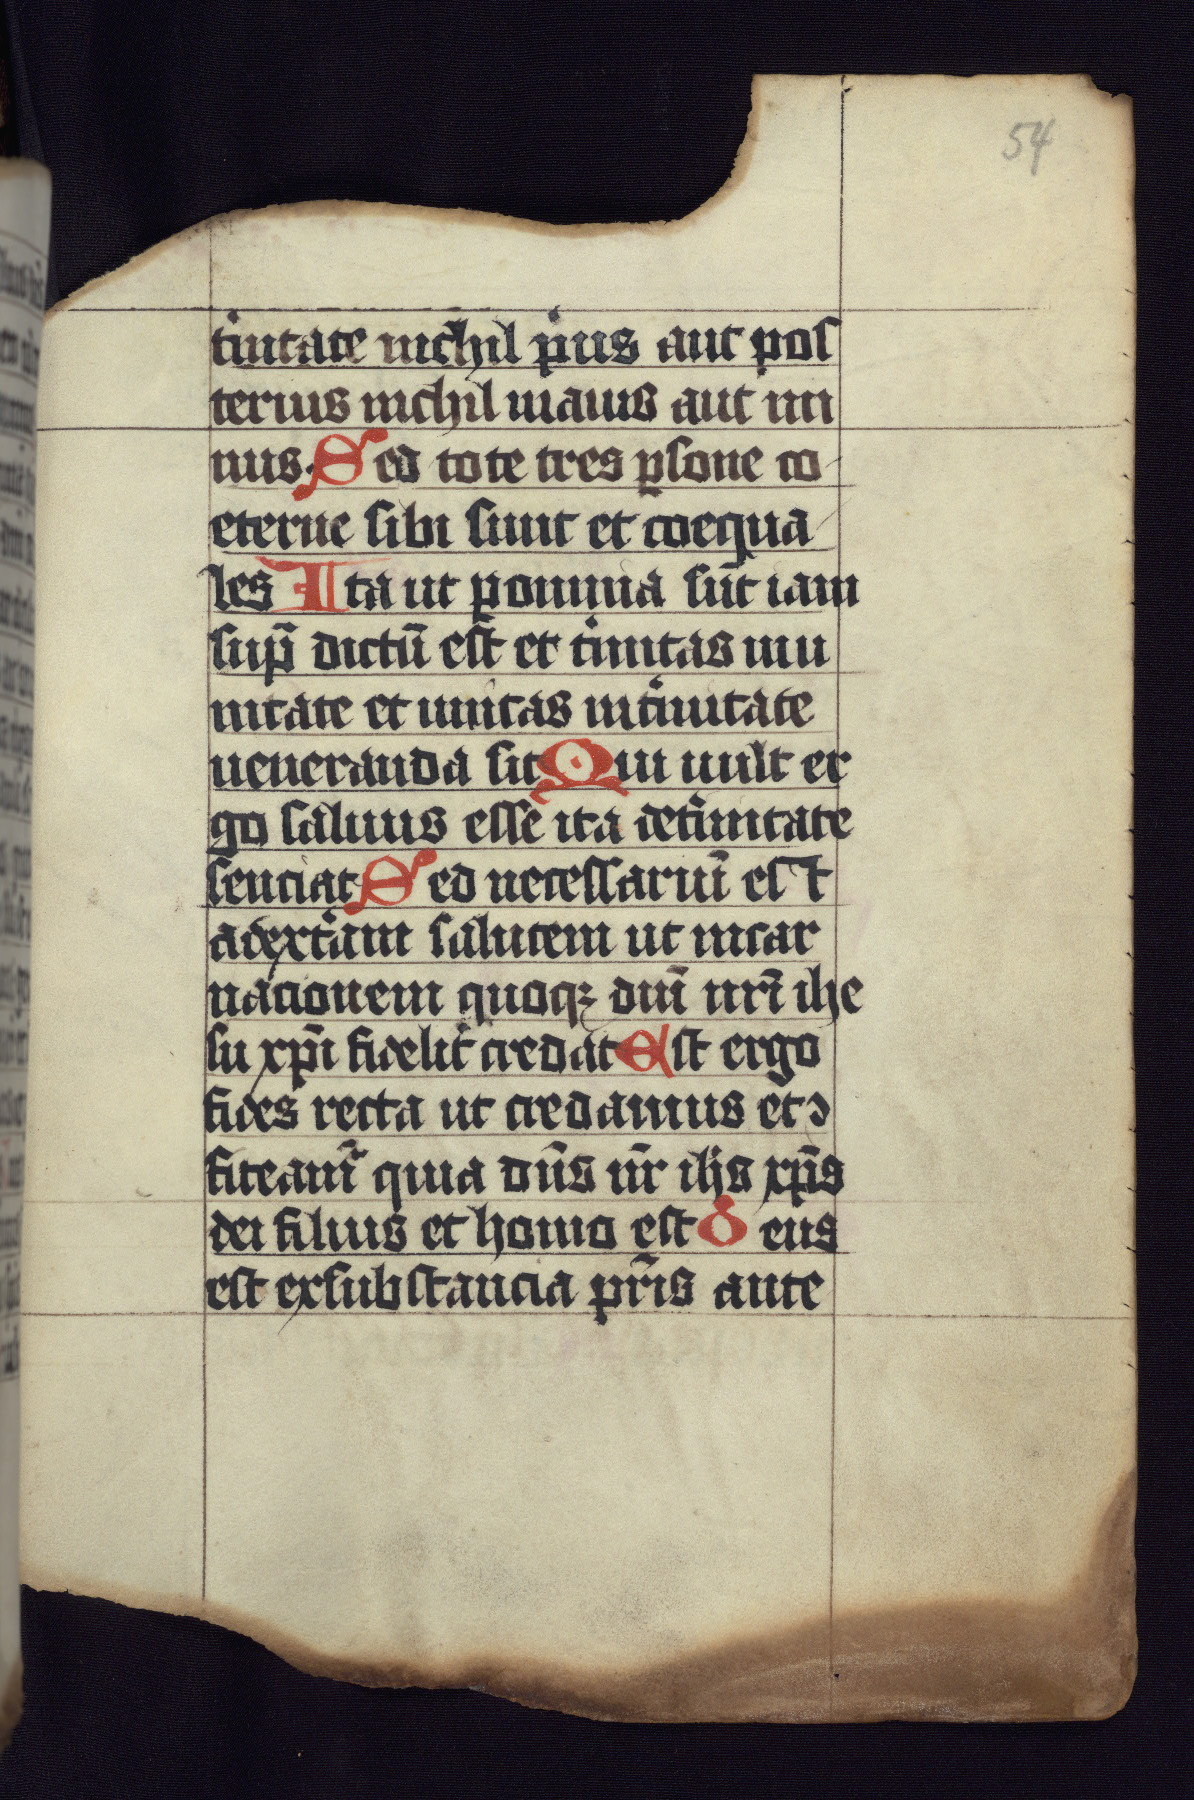 54
tͥnitate nichil pͥus aut pos
terius nichil maius aut mi
nus. Sed tote tres p̱sone co-
eterne sibi sunt et coequa-
les Ita ut p̱ omnia sūt iam
sup̄ dictū est et tͥnitas in u
nitate et unitas in tͥnitate
ueneranda sit Qui uult er
go saluus esse ita de tͥnitate
senciat Sed necessariū est
ad extͣam salutem ut incar
nacionem quoqꝫ dn̄i nr̄i ihe
su xp̄i fidelit̄ credat Est ergo
fides recta ut credamus et ɔ
fiteamͬ quia dn̄s nr̄ ih̄s xp̄s
dei filius et homo est Deus
est ex substancia pr̄is ante